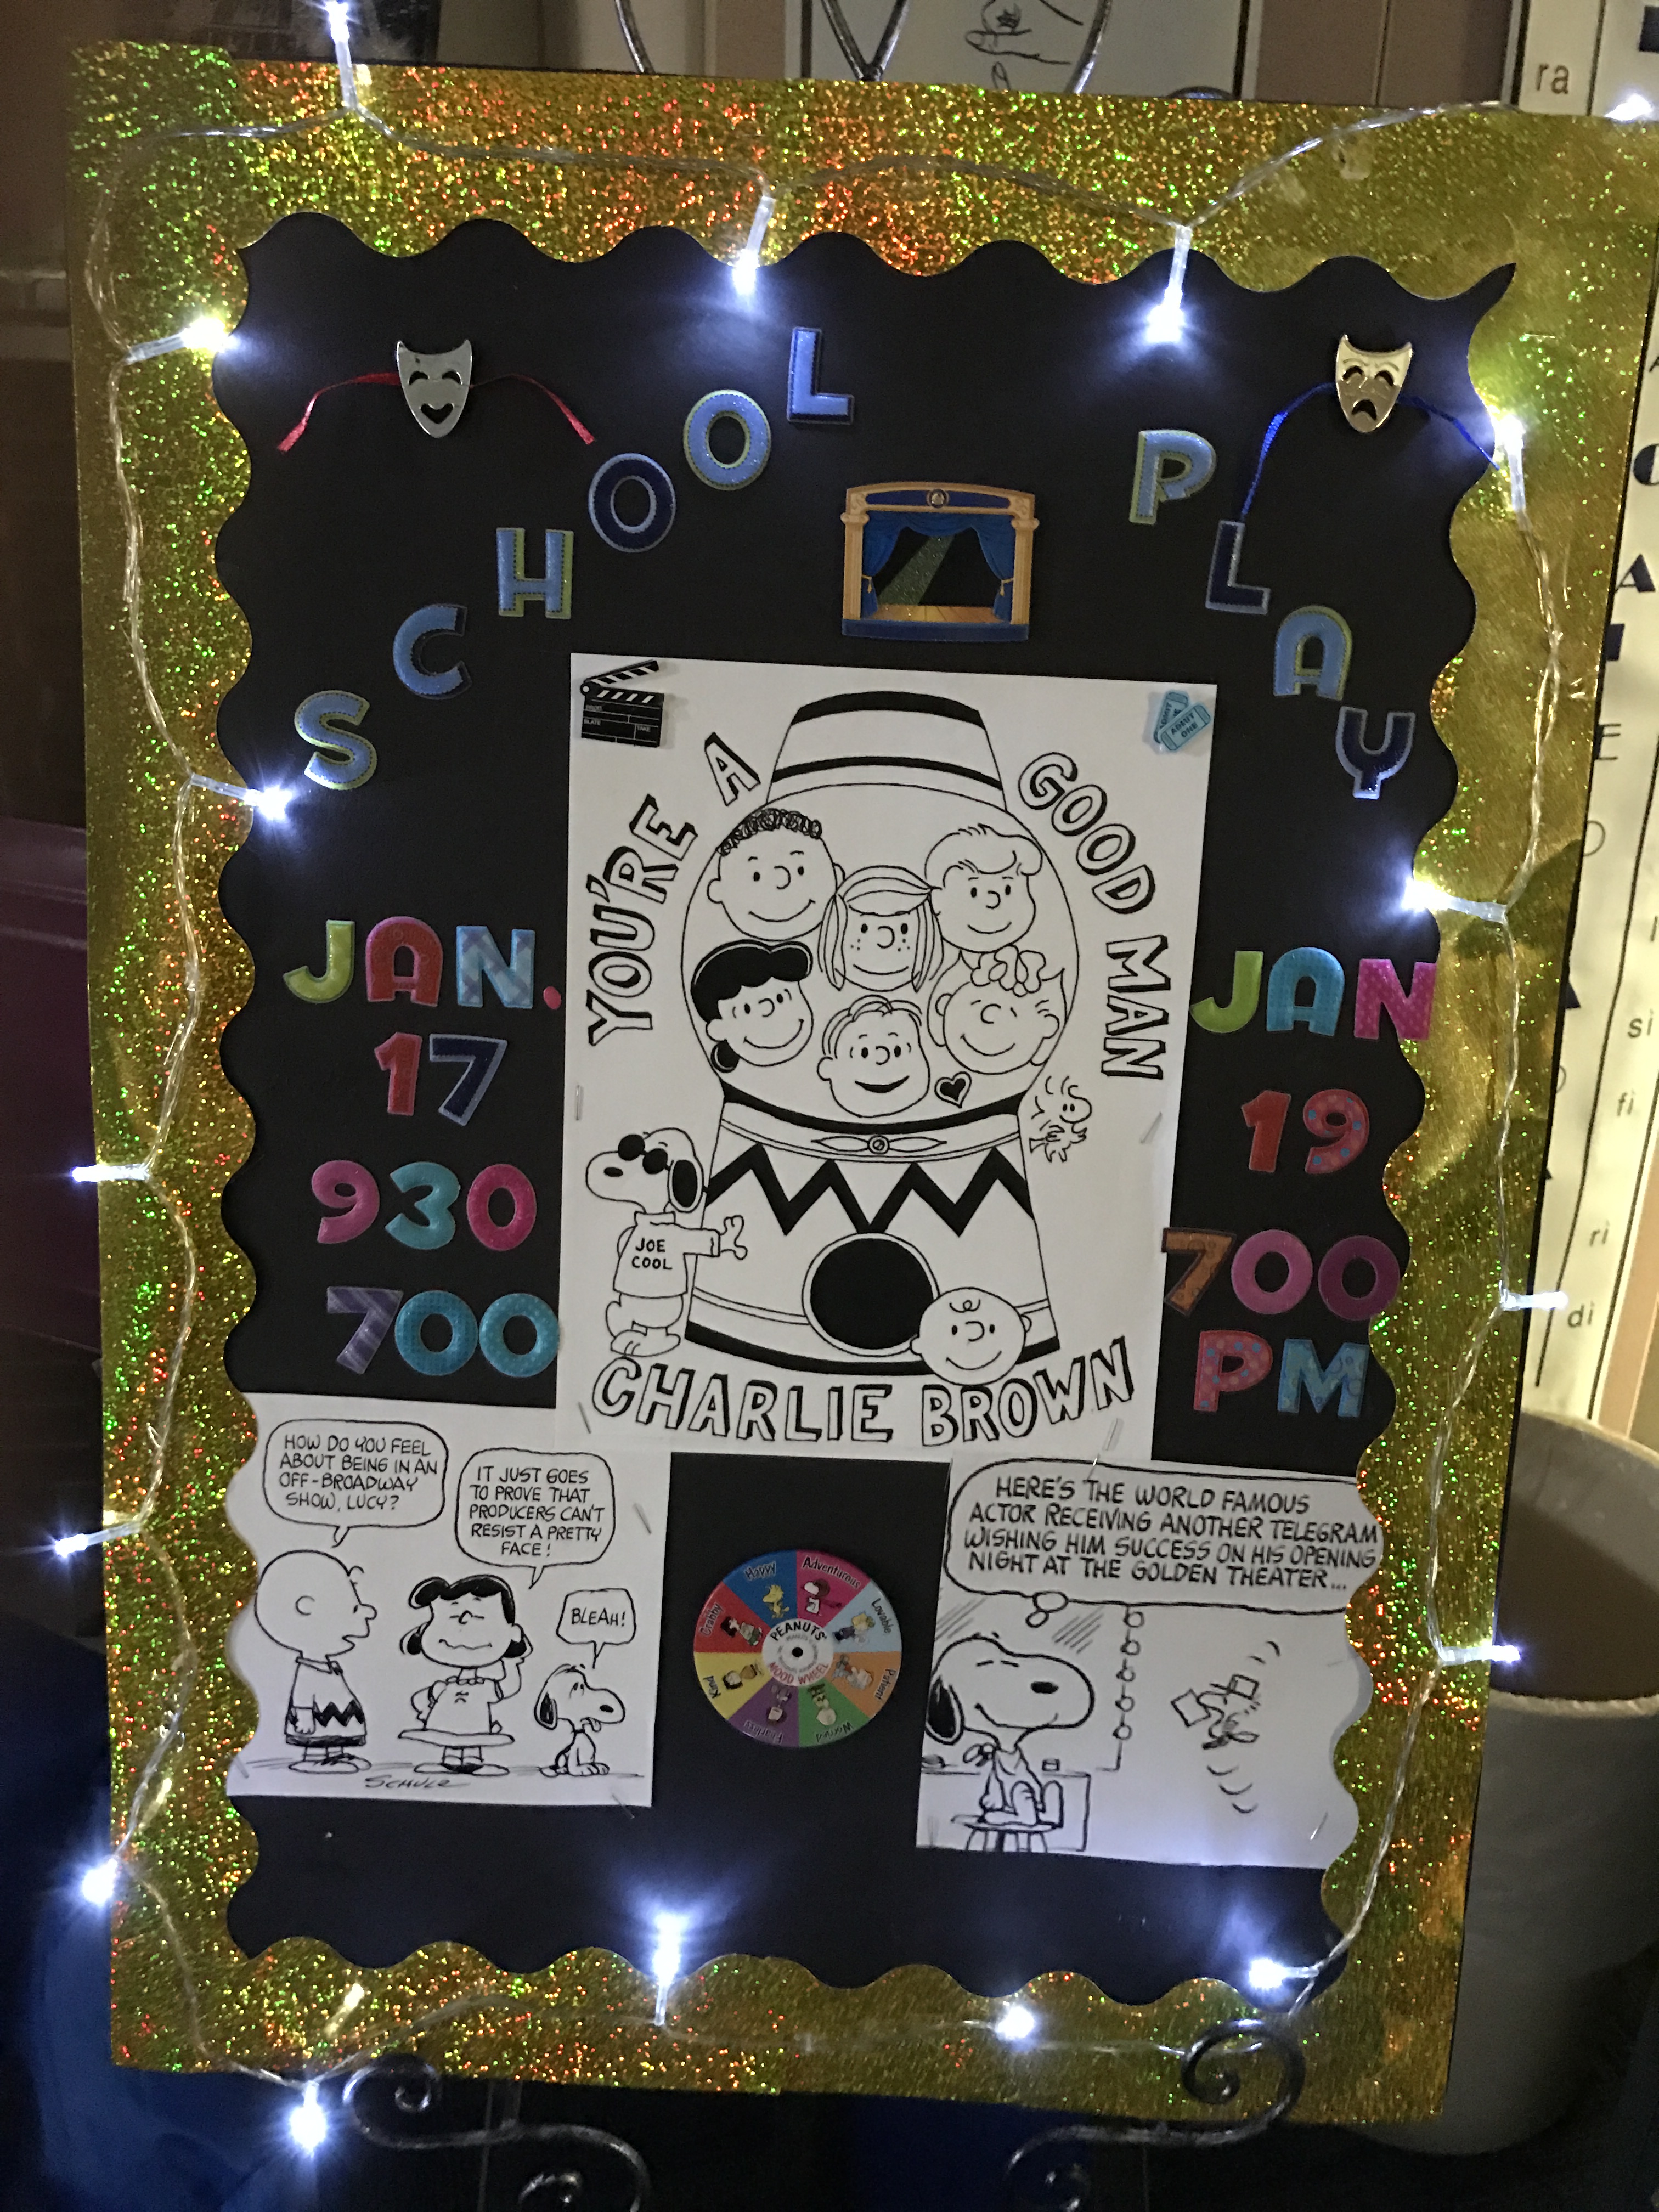 SCHOOL PLAY
YOU'RE A GOOD MAN
CHARLIE BROWN
ADMIT
ONE
JOE
COOL
JAN.
17
930
700
JAN
19
700
PM
HOW DO YOU FEEL
ABOUT BEING IN AN
OFF-BROADWAY
SHOW, LUCY?
IT JUST GOES
TO PROVE THAT
PRODUCERS CAN'T
RESIST A PRETTY
FACE!
BLEAH!
SCHULZ
PEANUTS
MOOD WHEEL
Happy
Adventurous
Lovable
Patient
Worried
Kind
Crabby
HERE'S THE WORLD FAMOUS
ACTOR RECEIVING ANOTHER TELEGRAM
WISHING HIM SUCCESS ON HIS OPENING
NIGHT AT THE GOLDEN THEATER...
ra
E
si
fi
ri
di